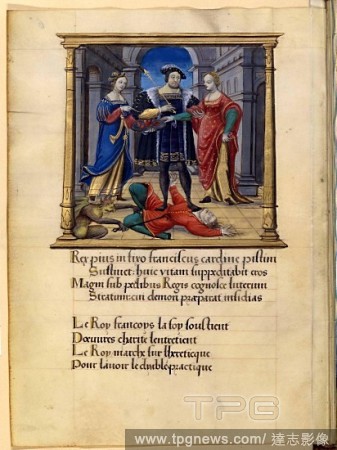 Rex pius in suo franciscus cardine pistim
Sustinet: huic vitam suppeditabit eros
Magni sub pedibus Regis cognosce luterum
Stratum cui demon præparat insidias
Le Roy francoys la foy soustient
Doeuures charite lentretient
Le Roy marche sur lhereticque
Pour lauoir le diable practique
TPG
www.tpgnews.com/達志影像